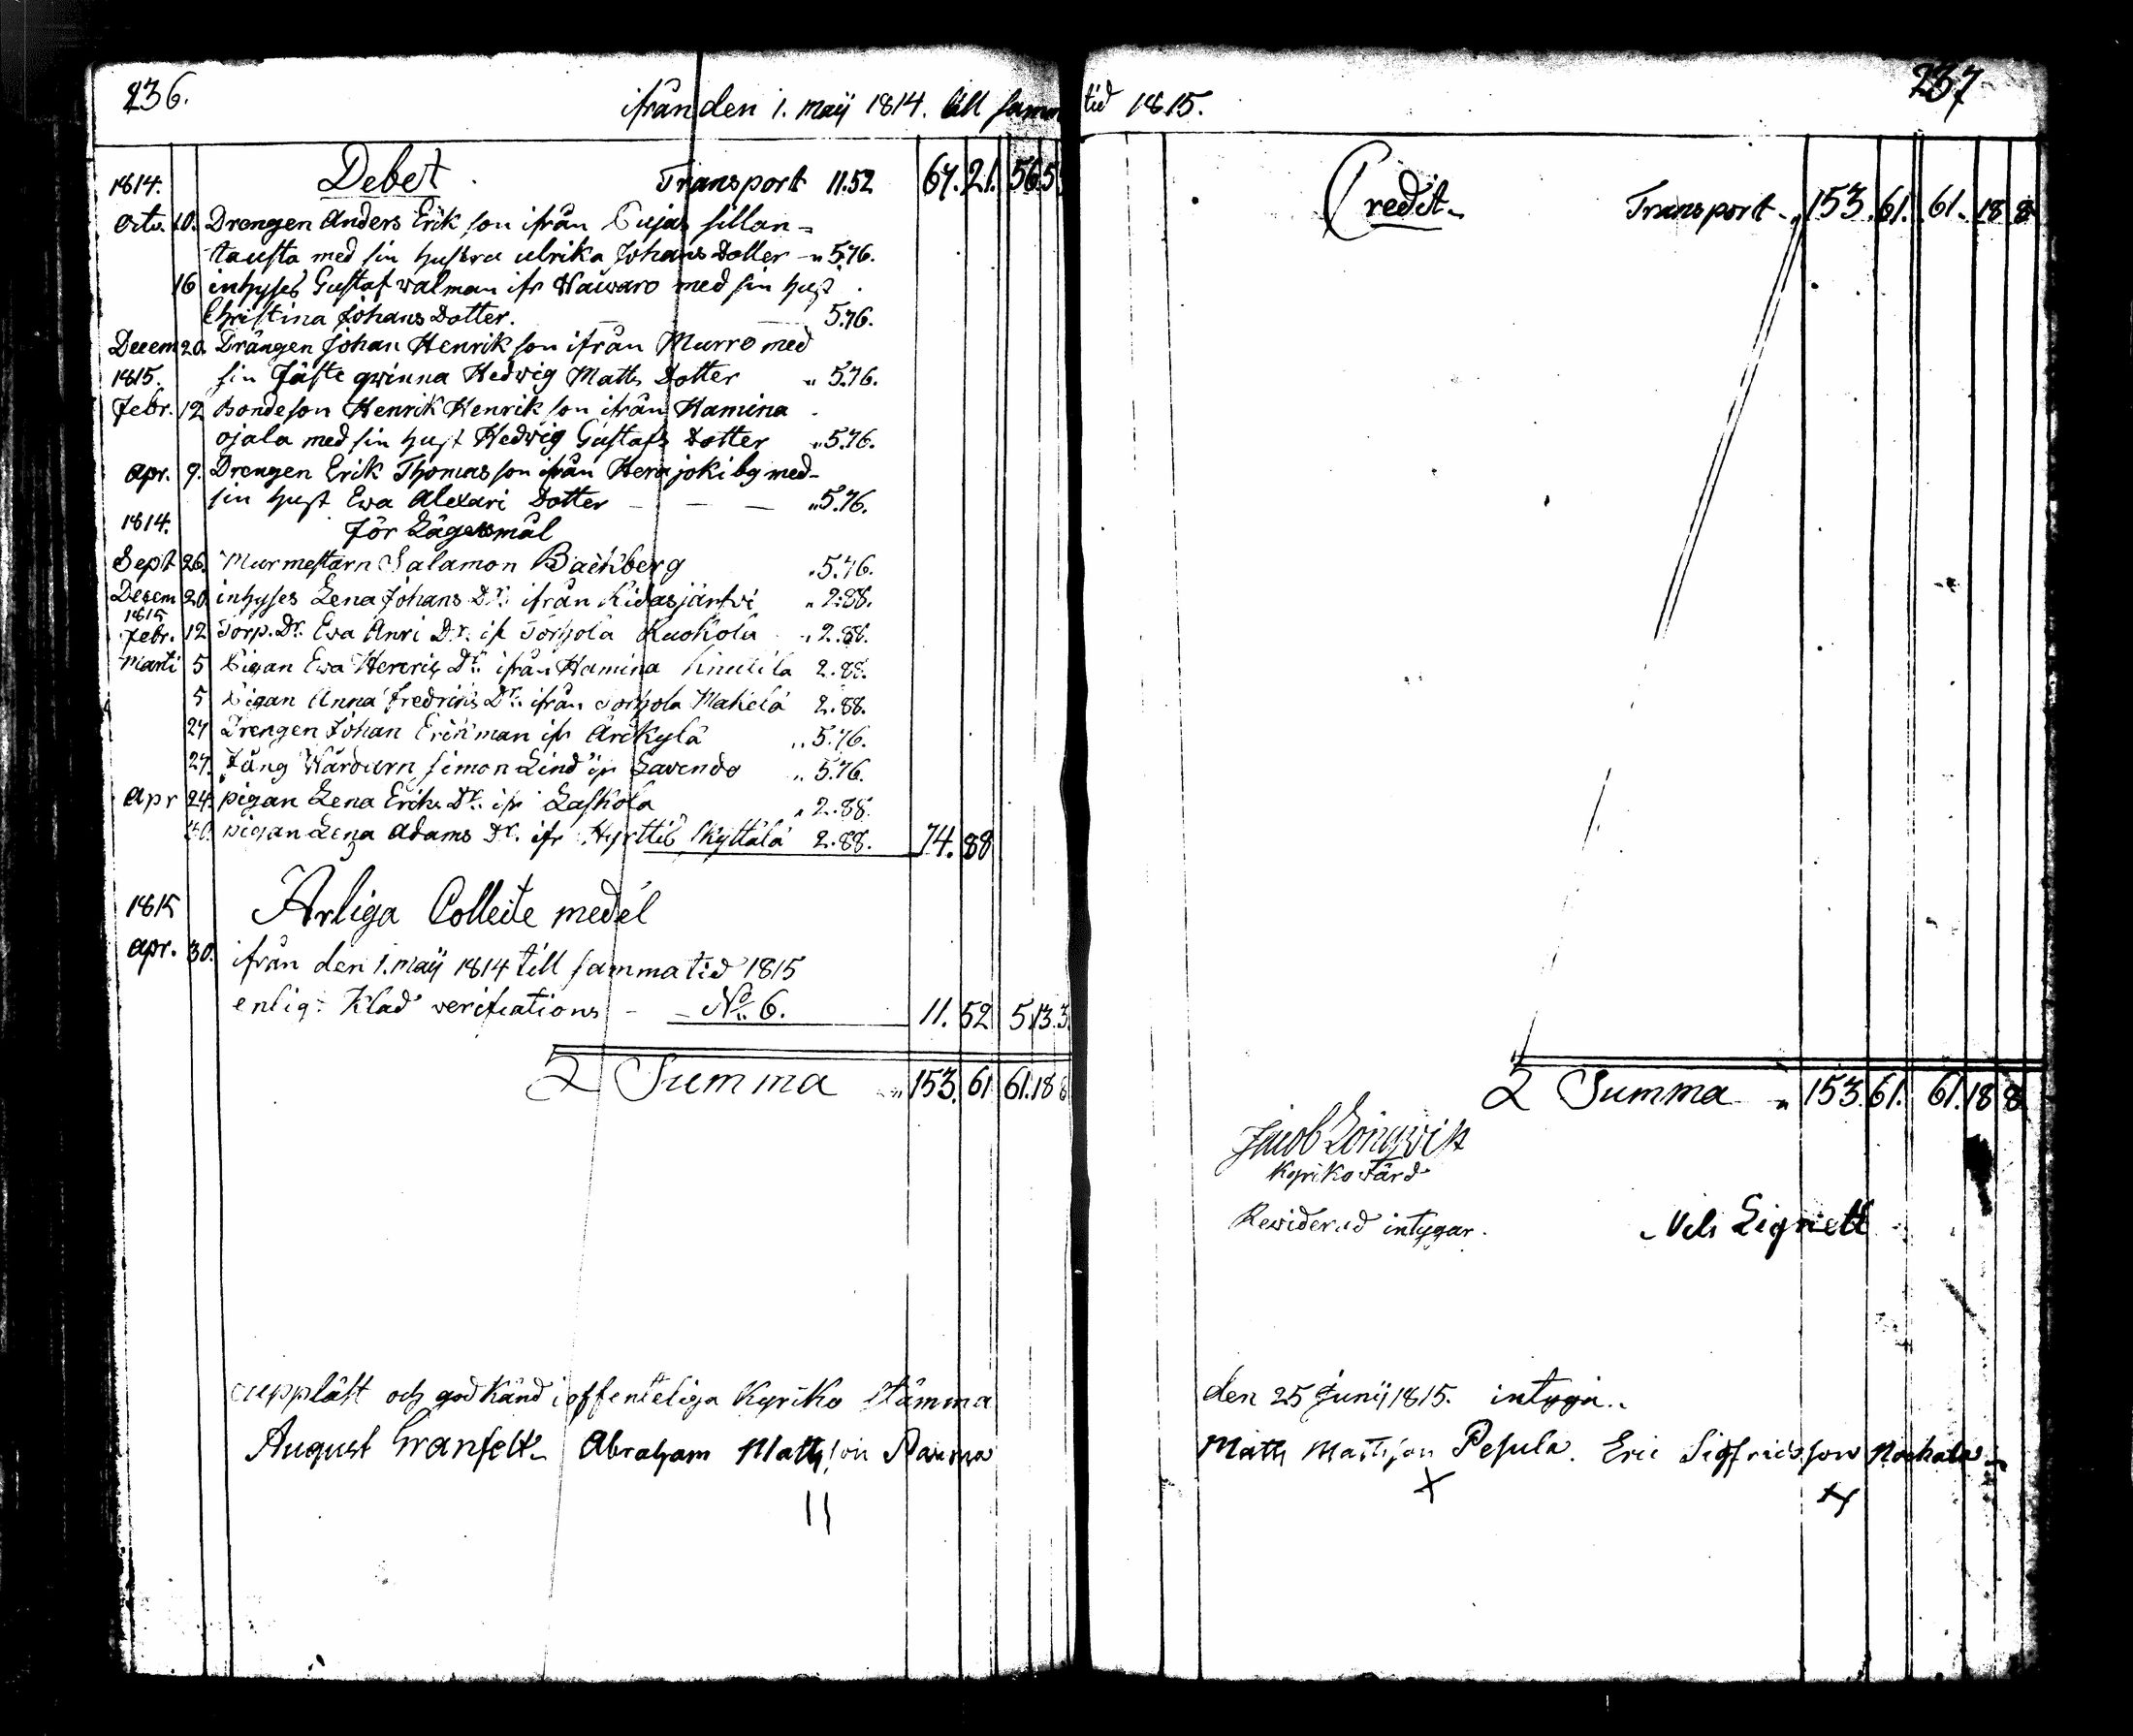 236.
ifrån den 1. maij 1814. till samm
1814. Debet Transport 11.52 67. 21. 56.5
Octo. 10. Drengen Anders Erik son ifrån Sillan=
tausta med sin hustru ulrika Johans Dotter " 5.76.
16 inhyses Gustaf walman ifr Nawaro med sin hust
Christina Johans Dotter. 5.76.
Decem 20. Drängen Johan Henrik son ifrån Murro med
1815. sin Fäste qwinna Hedwig Matts Dotter " 5.76.
Febr. 12 Bondeson Henrik Henrik son ifrån Hamina
ojala med sin hust Hedwig Gustafs Dotter " 5.76.
apr. 9. Drengen Erik Thomas son ifrån Herajoki by med
sin hust Ewa Alexari Dotter — — — " 5.76.
1814. För Lägersmål
Sept 26. Murmestarn Salamon Backberg " 5.76.
Decem 20. inhyses Lena Johans Dr. ifrån Kidasjärfvi " 2.88.
1815
Febr. 12 Torp. Dr. Ewa Anri Dr. if Torhola Kuokola " 2.88.
Marti 5 Pigan Ewa Henrix Dr. ifrån Hamina 2.88.
5 Pigan Anna Fredriks Dr. ifrån Torhola Makelä 2.88.
27 Drengen Johan Erikman ifr Arikylä " 5.76.
27. Fång Wårdarn Simon Lind ifr Lavendo " 5.76.
apr 24. pigan Lena Eriks Dr. ifr Laskola " 2.88.
pigan Lena Adams Dr. ifr Hyrttis Kyttälä 2.88. 74. 88
1815 Årliga Collecte medel
apr. 30. ifrån den 1. maij 1814 till samma tid 1815
enlig: Klad verifications — No. 6. 11. 52 5.13.3
Summa " 153. 61 61. 18 8
uppläst och godkänd i offenteliga Kyrko Stämma
August Granfelt Abraham Matts son Rauma
237
tid 1815.
Credit Transport " 153. 61. 61. 18 8
Summa " 153. 61. 61. 18 8
Jacob Longwik
Kyrkowärd
Reviderad intygar. Nils Lignell
den 25 Junij 1815. intyga.
Matts Mattsson Pesula. Eric Sigfridsson
X X